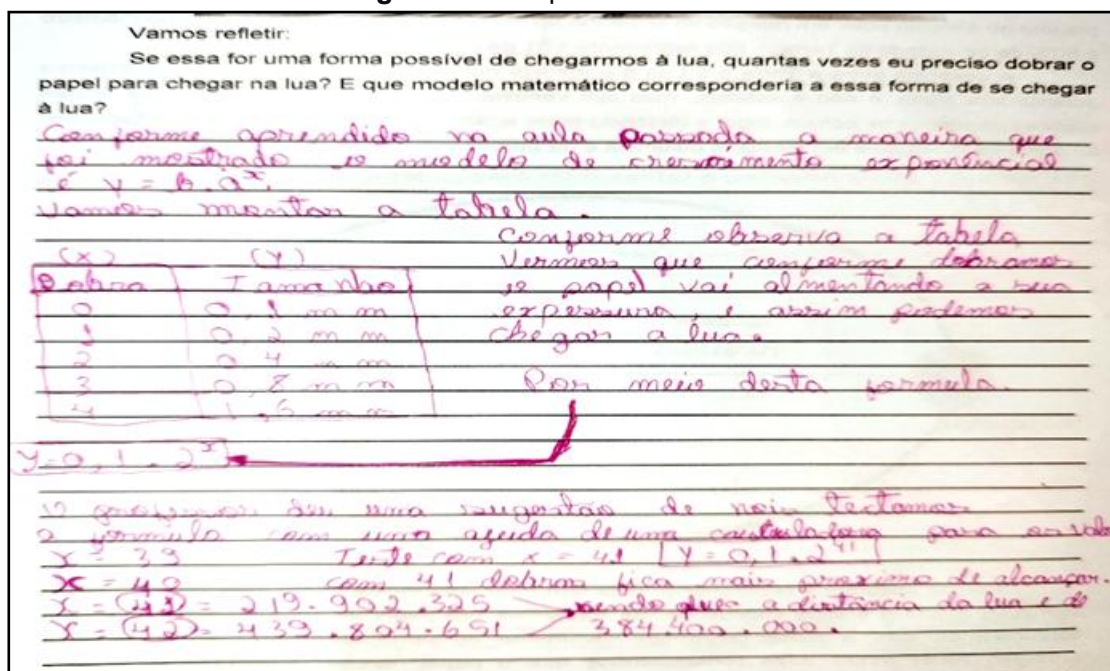 Vamos refletir:
Se essa for uma forma possível de chegarmos à lua, quantas vezes eu preciso dobrar o
papel para chegar na lua? E que modelo matemático corresponderia a essa forma de se chegar
à lua?
Conforme aprendido na aula passada a maneira que
foi mostrado o modelo de crescimento exponencial
é y = b.a^x.
Vamos montar a tabela.
(x) (y)
Dobra Tamanho
0 0,1 mm
1 0,2 mm
2 0,4 mm
3 0,8 mm
4 1,6 mm
Conforme observa a tabela
Vermos que conforme dobramos
o papel vai almentando a sua
e assim podemos
chegar a lua.
Por meio desta formula.
y=0,1.2^x
O professor deu uma sugestão de nois tectamos
a formula com uma ajuda de uma para os
x = 39 Teste com x = 41 [y = 0,1.2^41]
x = 40 com 41 dobras fica mais proximo de alcançar.
x = 41 = 219.902.325 sendo que a distância da lua e de
x = 42 = 439.804.651 384.400.000.